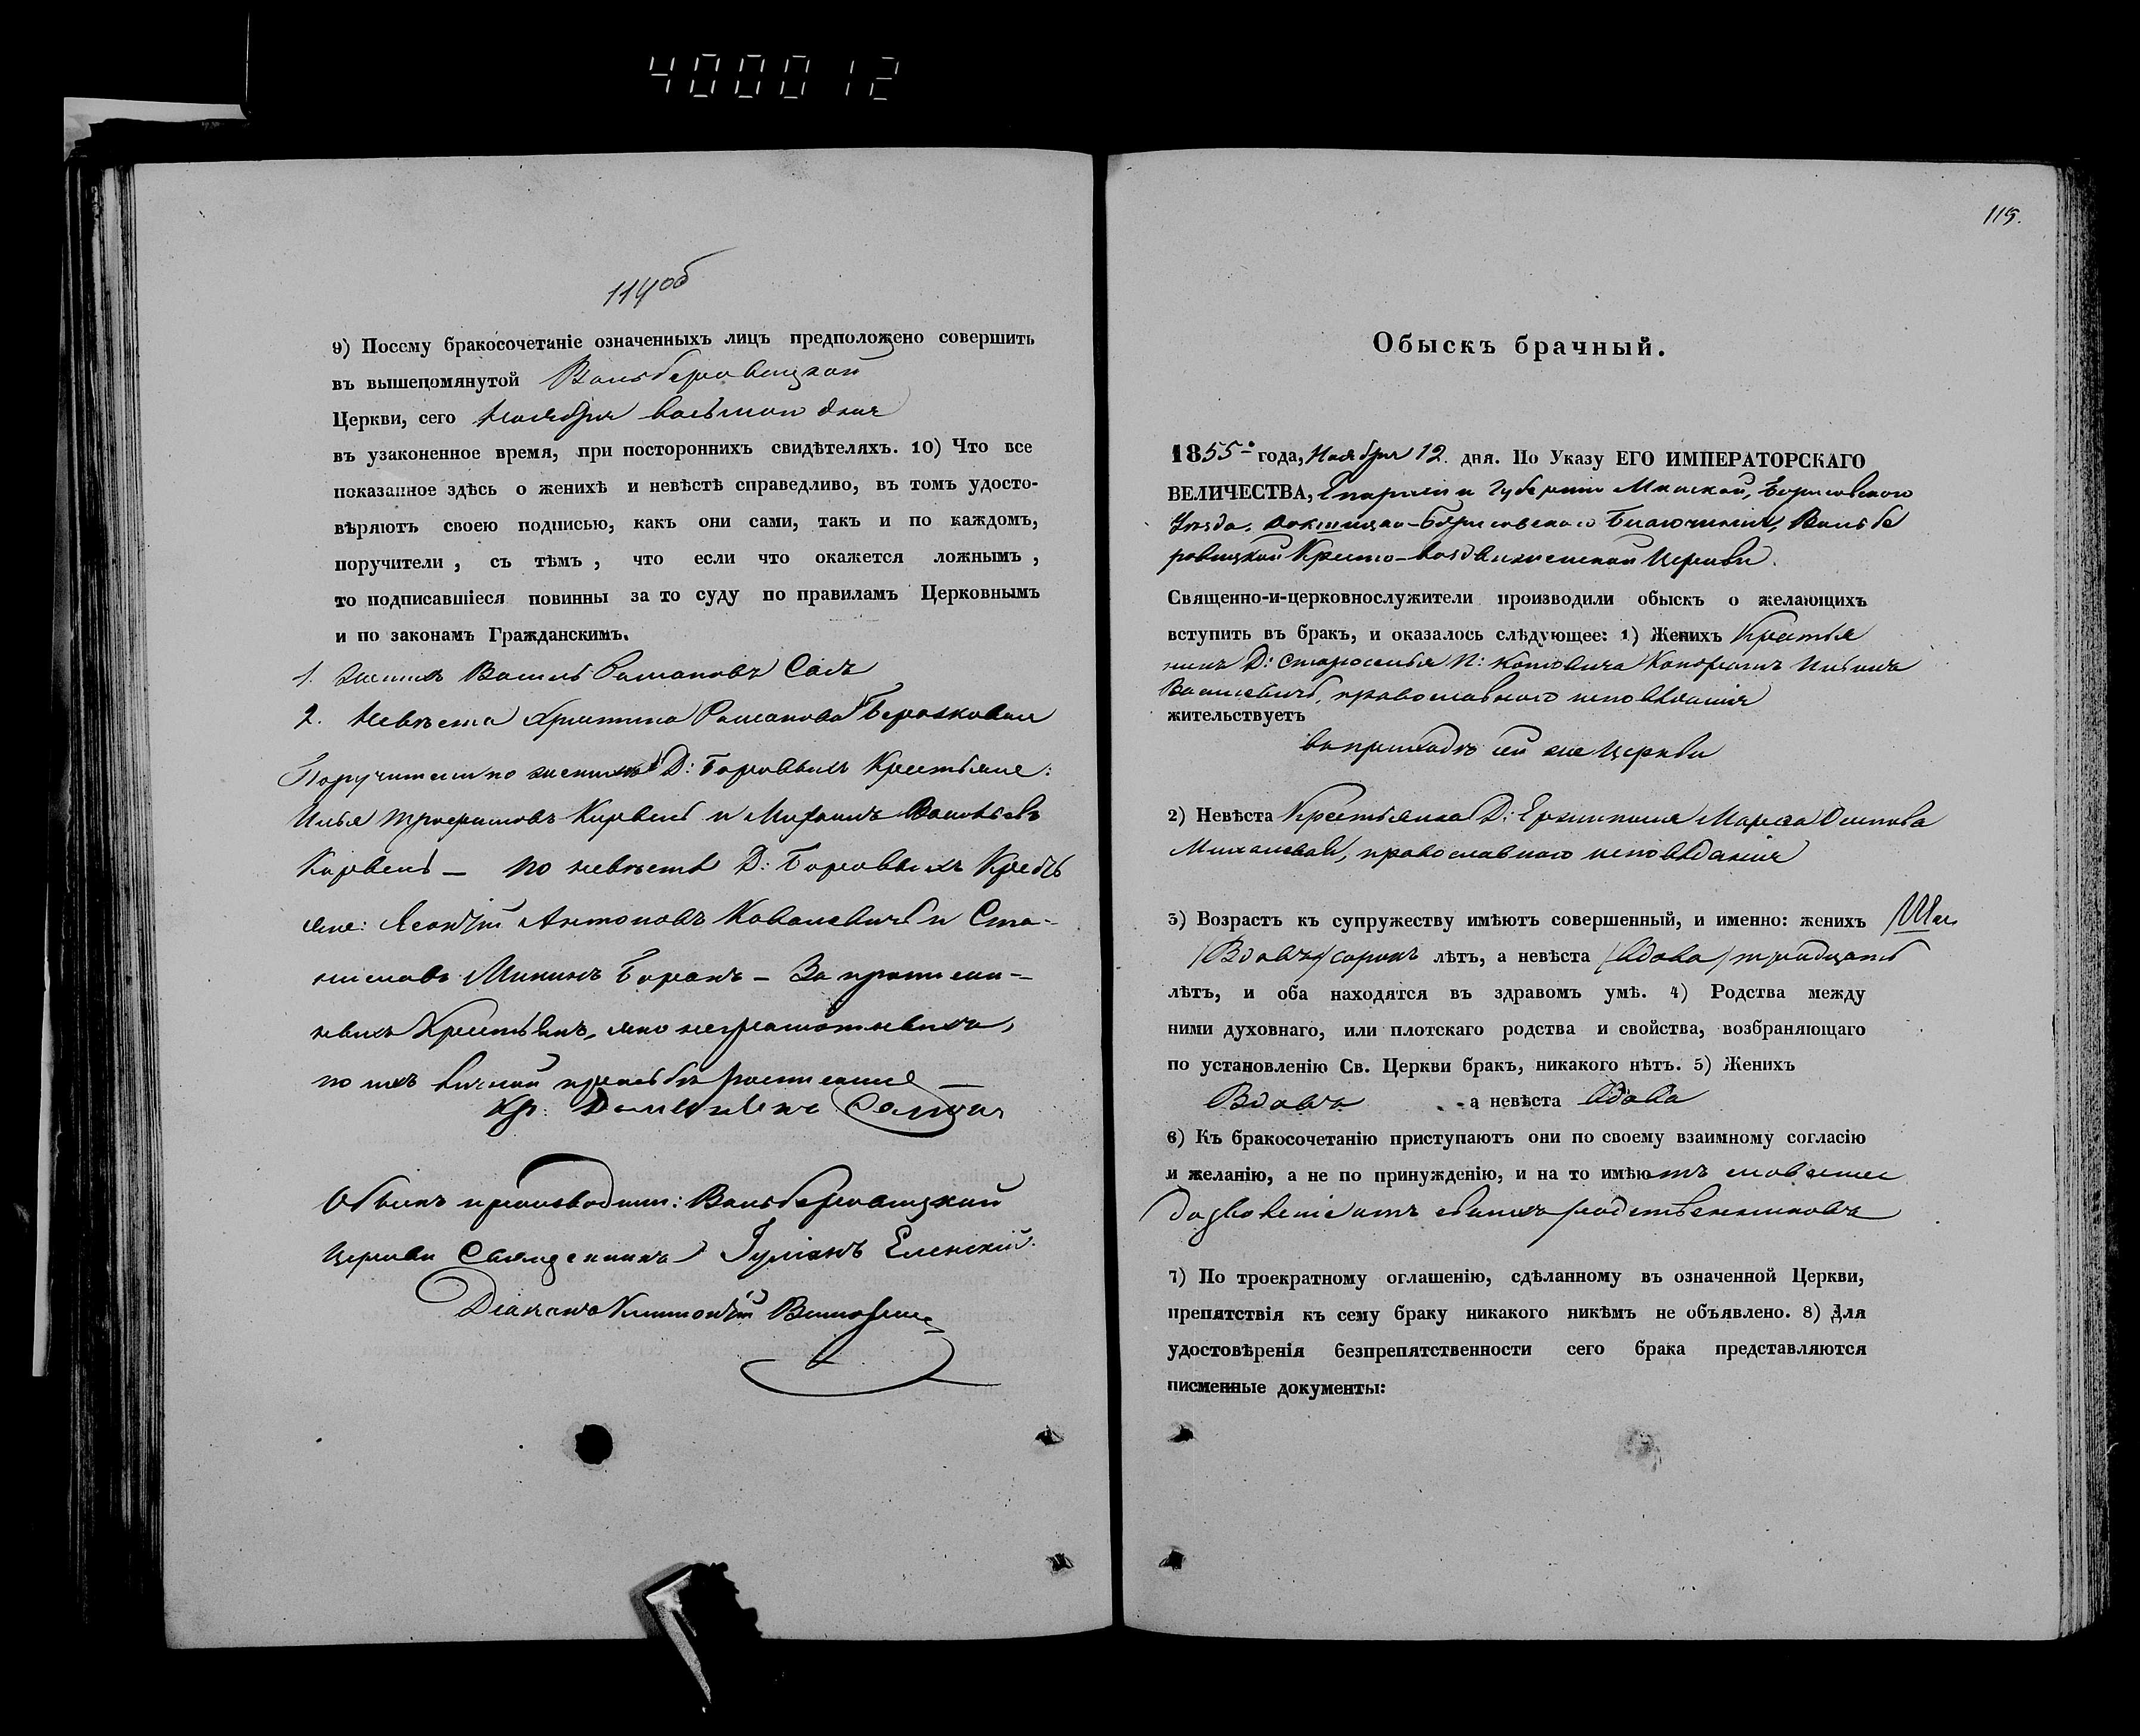 4000012
114об
9) Посему бракосочетаніе означенныхъ лицъ предположено совершить
въ вышепомянутой Вольберовицкой
Церкви, сего Ноября восьмого дня
въ узаконенное время, при постороннихъ свидѣтеляхъ. 10) Что все
показанное здѣсь о женихѣ и невѣстѣ справедливо, въ томъ удосто-
вѣряютъ своею подписью, какъ они сами, такъ и по каждомъ,
поручители, съ тѣмъ, что если что окажется ложнымъ,
то подписавшіеся повинны за то суду по правиламъ Церковнымъ
и по законамъ Гражданскимъ.
1. Женихъ Василь Романовъ
2. Невѣста Романова
Поручители по женихѣ Д: Боровыхъ Крестьяне:
Илья Трофимовъ Кирвель и
Кирвель – по невѣстѣ Д: Боровыхъ Кресть
яне: Леонтій Антоновъ Ковалевичъ и Ста-
ниславъ – За прописан-
ныхъ Крестьянъ, яко неграмотныхъ,
по ихъ личной просьбѣ росписался –
Кр:
Обыскъ производили: Вольберовицкой
Церкви Священникъ Іуліанъ Еленскій.
Діаконъ
115.
Обыскъ брачный.
1855 года, Ноября 12. дня. По Указу ЕГО ИМПЕРАТОРСКАГО
ВЕЛИЧЕСТВА, Епархіи и Губерніи Минской, Борисовского
Уѣзда, Докшицко-Борисовскаго Благочинія, Вольбе
ровицкой Кресто-воздвиженской Церкви.
Священно-и-церковнослужители производили обыскъ о желающихъ
вступить въ бракъ, и оказалось слѣдующее: 1) Женихъ Крестья
нинъ Д: Староселья П: Котовича
православного исповѣданія
жительствуетъ
въ приходѣ сей же Церкви
2) Невѣста Крестьянка Д: Осипова
православного исповѣданія
3) Возрастъ къ супружеству имѣютъ совершенный, и именно: женихъ
/Вдовъ/ сорокъ лѣтъ, а невѣста /вдова/ тридцать
лѣтъ, и оба находятся въ здравомъ умѣ. 4) Родства между
ними духовнаго, или плотскаго родства и свойства, возбраняющаго
по установленію Св. Церкви бракъ, никакого нѣтъ. 5) Женихъ
Вдовъ а невѣста вдова
6) Къ бракосочетанію приступаютъ они по своему взаимному согласію
и желанію, а не по принужденію, и на то имѣютъ словесное
дозволеніе отъ своихъ родственниковъ
7) По троекратному оглашенію, сдѣланному въ означенной Церкви,
препятствія къ сему браку никакого никѣмъ не объявлено. 8) Для
удостовѣренія безпрепятственности сего брака представляются
писменные документы: